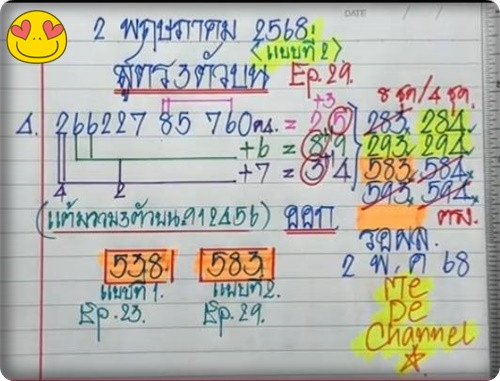 DATE
2 พฤษภาคม 2568.
<แบบที่ 2>
สูตร 3 ตัวบน Ep. 29.
8 ชุด/4 ชุด.
+3
266227 85 760 = 2 5 283, 284
+6 = 8 2 9 293, 294
+7 = 3 4 583, 584
4 2 593, 594
ออก ตรง.
538. 583. รอผล.
แบบที่ 1. แบบที่ 2. 2 พ.ค 68
Ep. 23. Ep. 29. Me
De
Channel